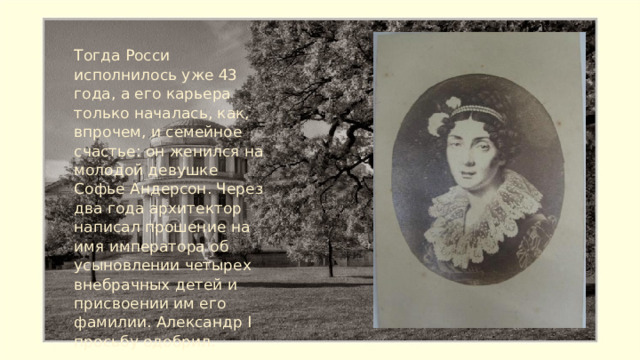 Тогда Росси
исполнилось уже 43
года, а его карьера
только началась, как,
впрочем, и семейное
счастье: он женился на
молодой девушке
Софье Андерсон. Через
два года архитектор
написал прошение на
имя императора об
усыновлении четырех
внебрачных детей и
присвоении им его
фамилии. Александр I
просьбу одобрил